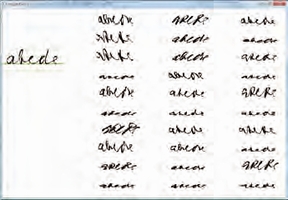 abcde abcde abcde
abcde abcde abcde
abcde abcde abcde abcde
abcde abcde abcde
abcde abcde abcde
abcde abcde abcde
abcde abcde abcde
abcde abcde abcde
abcde abcde abcde
abcde abcde abcde